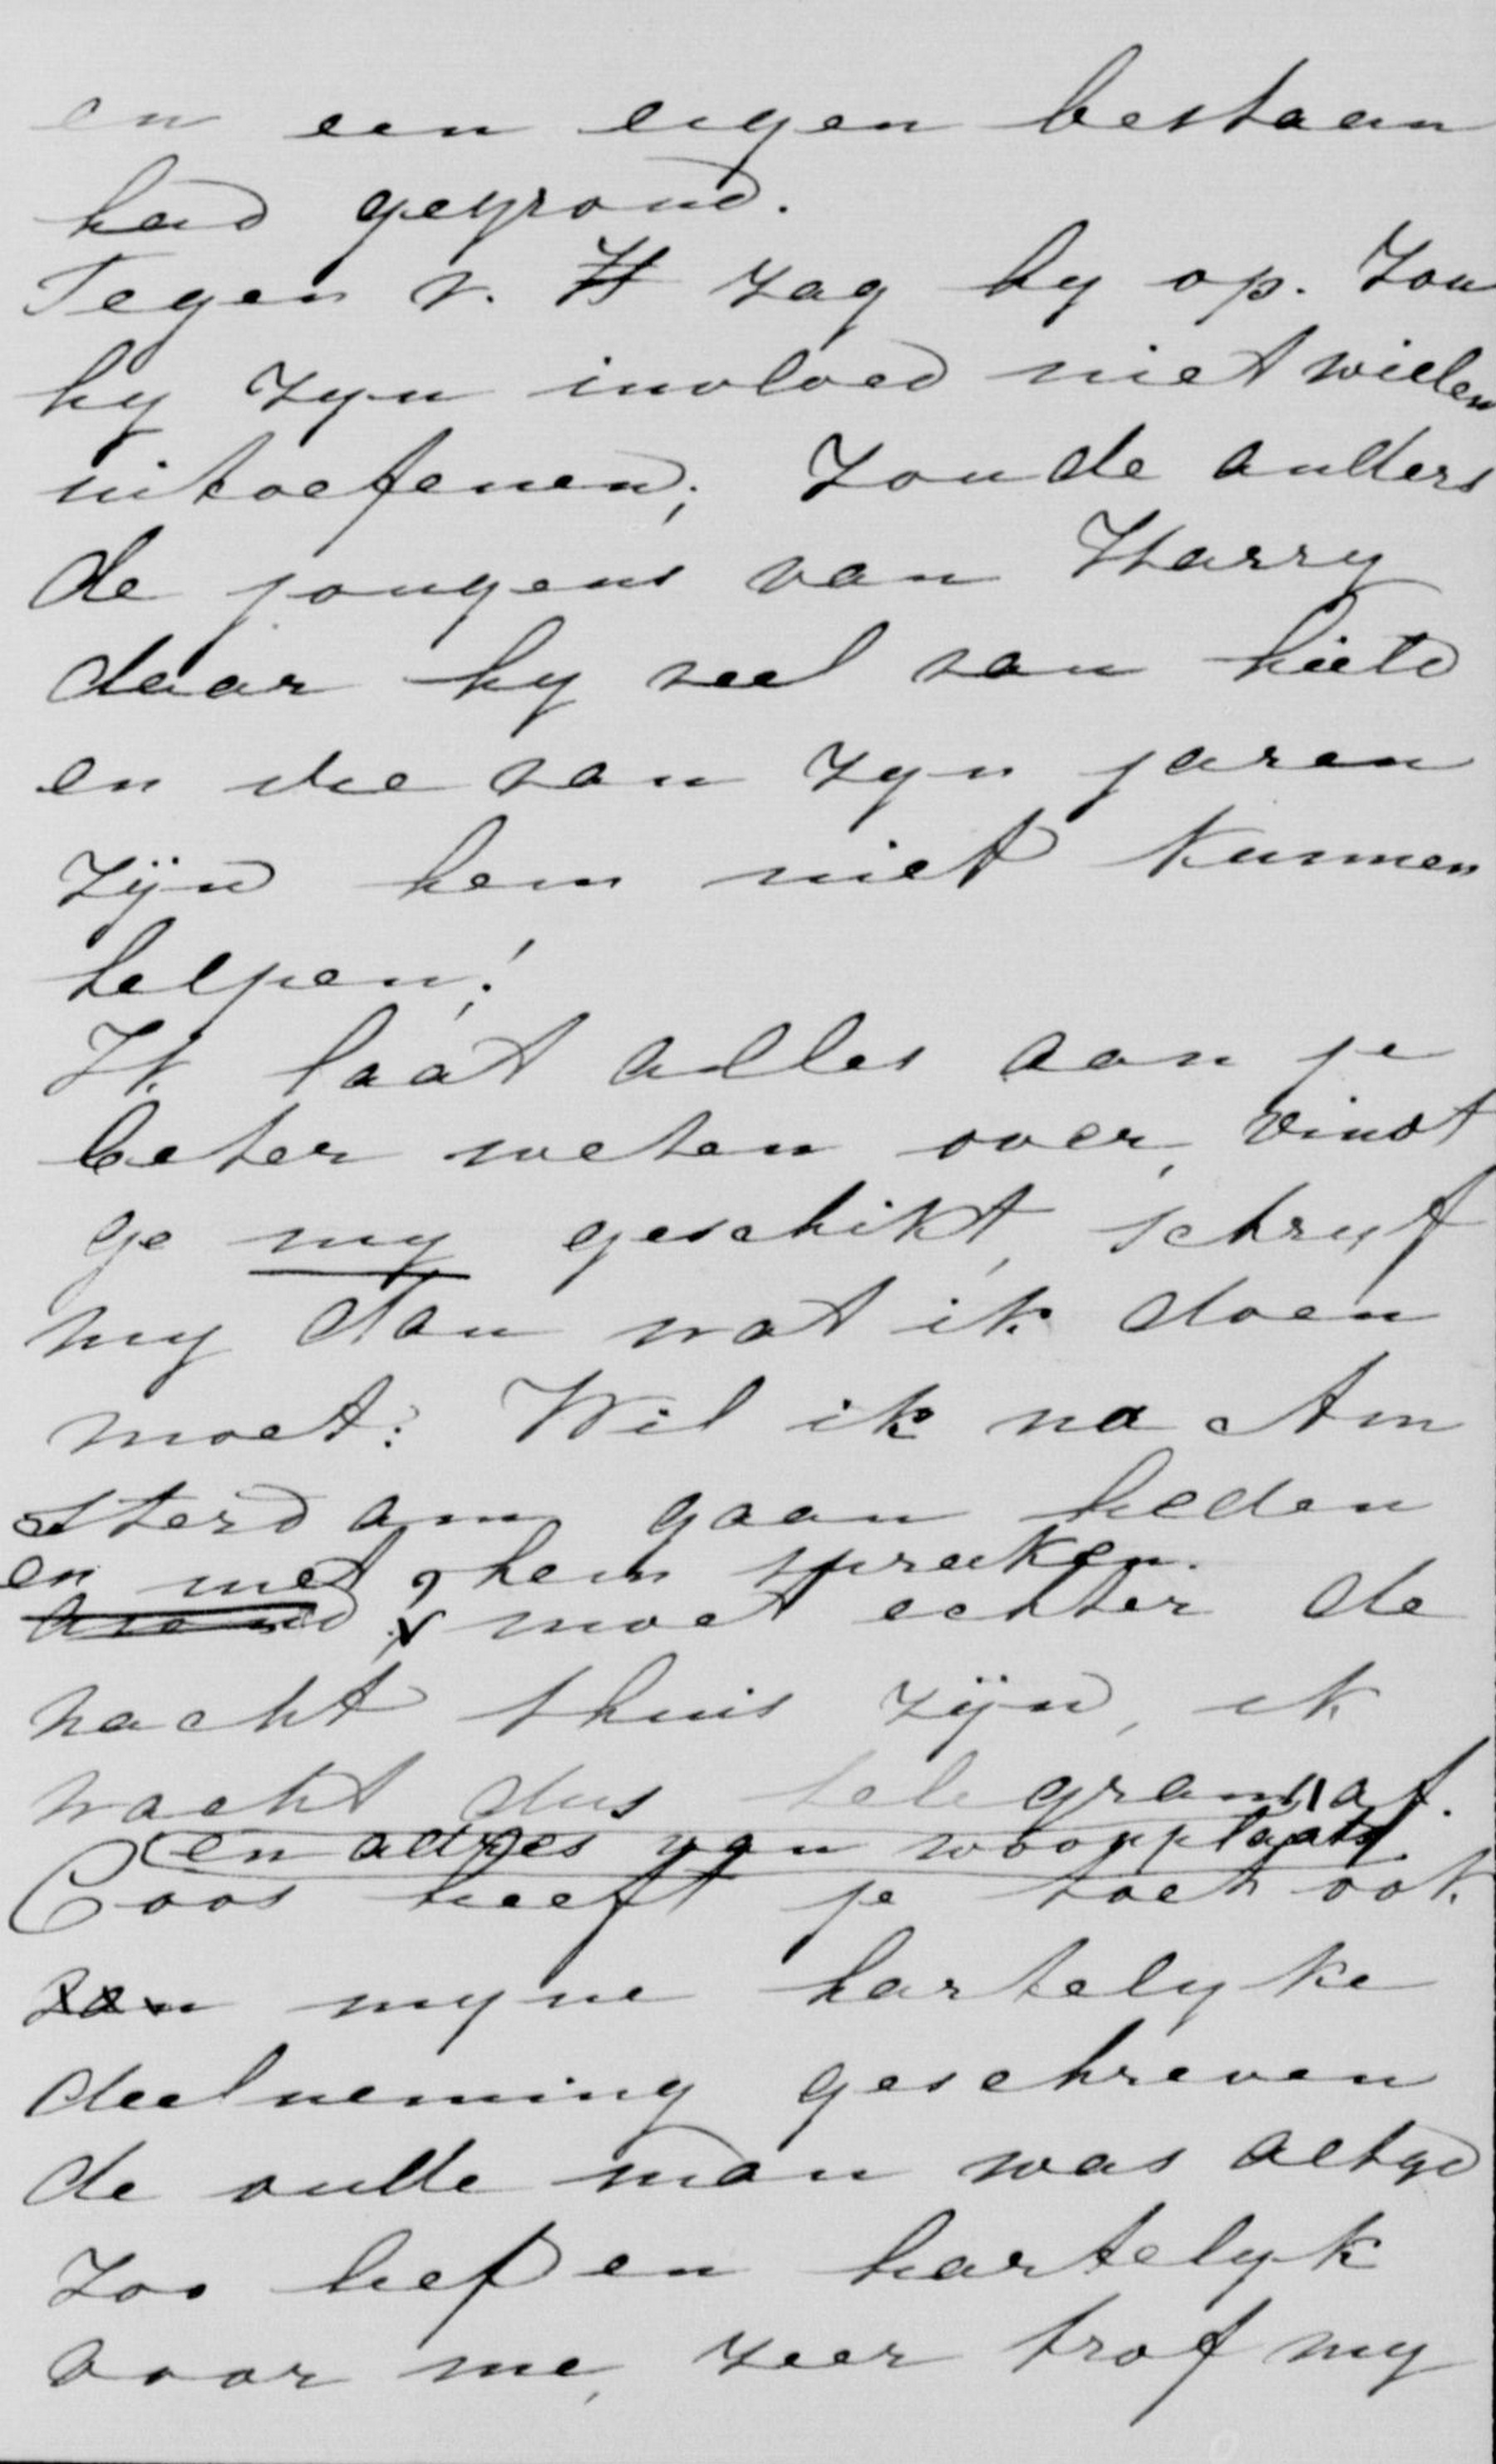 en een eigen bestaan
had gegrond.
Tegen v. H zag hy op. Zou
hy zyn invloed niet willen
uitoefenen; Zoude anders
de jongens van Harry
daar hy veel van hield
en die van zyn jaren
zijn hem niet kunnen
helpen!
Ik laat alles aan je
beter weten over, vindt
ge my geschikt, schryf
my dan wat ik doen
moet: Wil ik na Am
sterdam gaan heden
en met hem spreken.
avond ? moet echter de
nacht thuis zijn, ik
wacht dus telegram af.
en adres van woonplaats
Coos heeft je toch ook
van myne hartelyke
deelneming geschreven
de oude man was altyd
zoo lief en hartelyk
voor me, zeer trof my